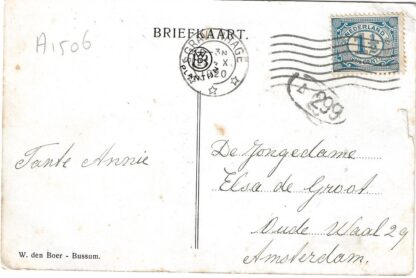 BRIEFKAART.
A1506
'S GRAVENHAGE
3N
X
20
NEDERLAND
1½
299
De Jongedame
Tante Annie
Elsa de Groot
Oude Waal 29
Amsterdam.
W. den Boer - Bussum.